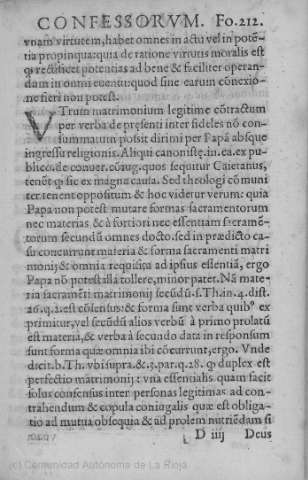 CONFESSORVM. Fo.212.
vnam virtutem, habet omnes in actu vel in potē-
tia propinqua: quia de ratione virtutis moralis est
qɔ rectificet potentias ad bene & faciliter operan-
dam in omni euentu: quod sine earum cōnexio-
ne fieri non potest.
VTrum matrimonium legitime cōtractum
per verba de pręsenti inter fideles nō con-
summatum possit dirimi per Papā absque
ingressu religionis. Aliqui canonistę. in. ca. ex pu-
blico. de conuer. cōiug. quos sequitur Caietanus,
tenēt qɔ sic ex magna causa. Sed theologi cōmuni
ter tenent oppositum & hoc videtur verum: quia
Papa non potest mutare formas sacramentorum
nec materias & à fortiori nec essentiam sacramē-
torum secundū omnes docto. sed in prædicto ca-
su concurrunt materia & forma sacramenti matri
monij & omnia requisita ad ipsius essentiā, ergo
Papa nō potest illa tollere, minor patet. Nā mate-
ria sacramēti matrimonij secūdū. s. Th. in. 4. dist.
26. q. 2. est cōsensus: & forma sunt verba quibꝰ ex
primitur, vel secūdū alios verbū à primo prolatū
est materia, & verba à secundo data in responsum
sunt forma quæ omnia ibi cōcurrunt, ergo. Vnde
dicit. b. Th. vbi supra. & 3. par. q. 28. qɔ duplex est
perfectio matrimonij: vna essentialis quam facit
solus consensus inter personas legitimas ad con-
trahendum & copula coniugalis quæ est obliga-
tio ad mutua obsequia & ad prolem nutriēdam si
D iiij Deus
(c) Comunidad Autónoma de La Rioja